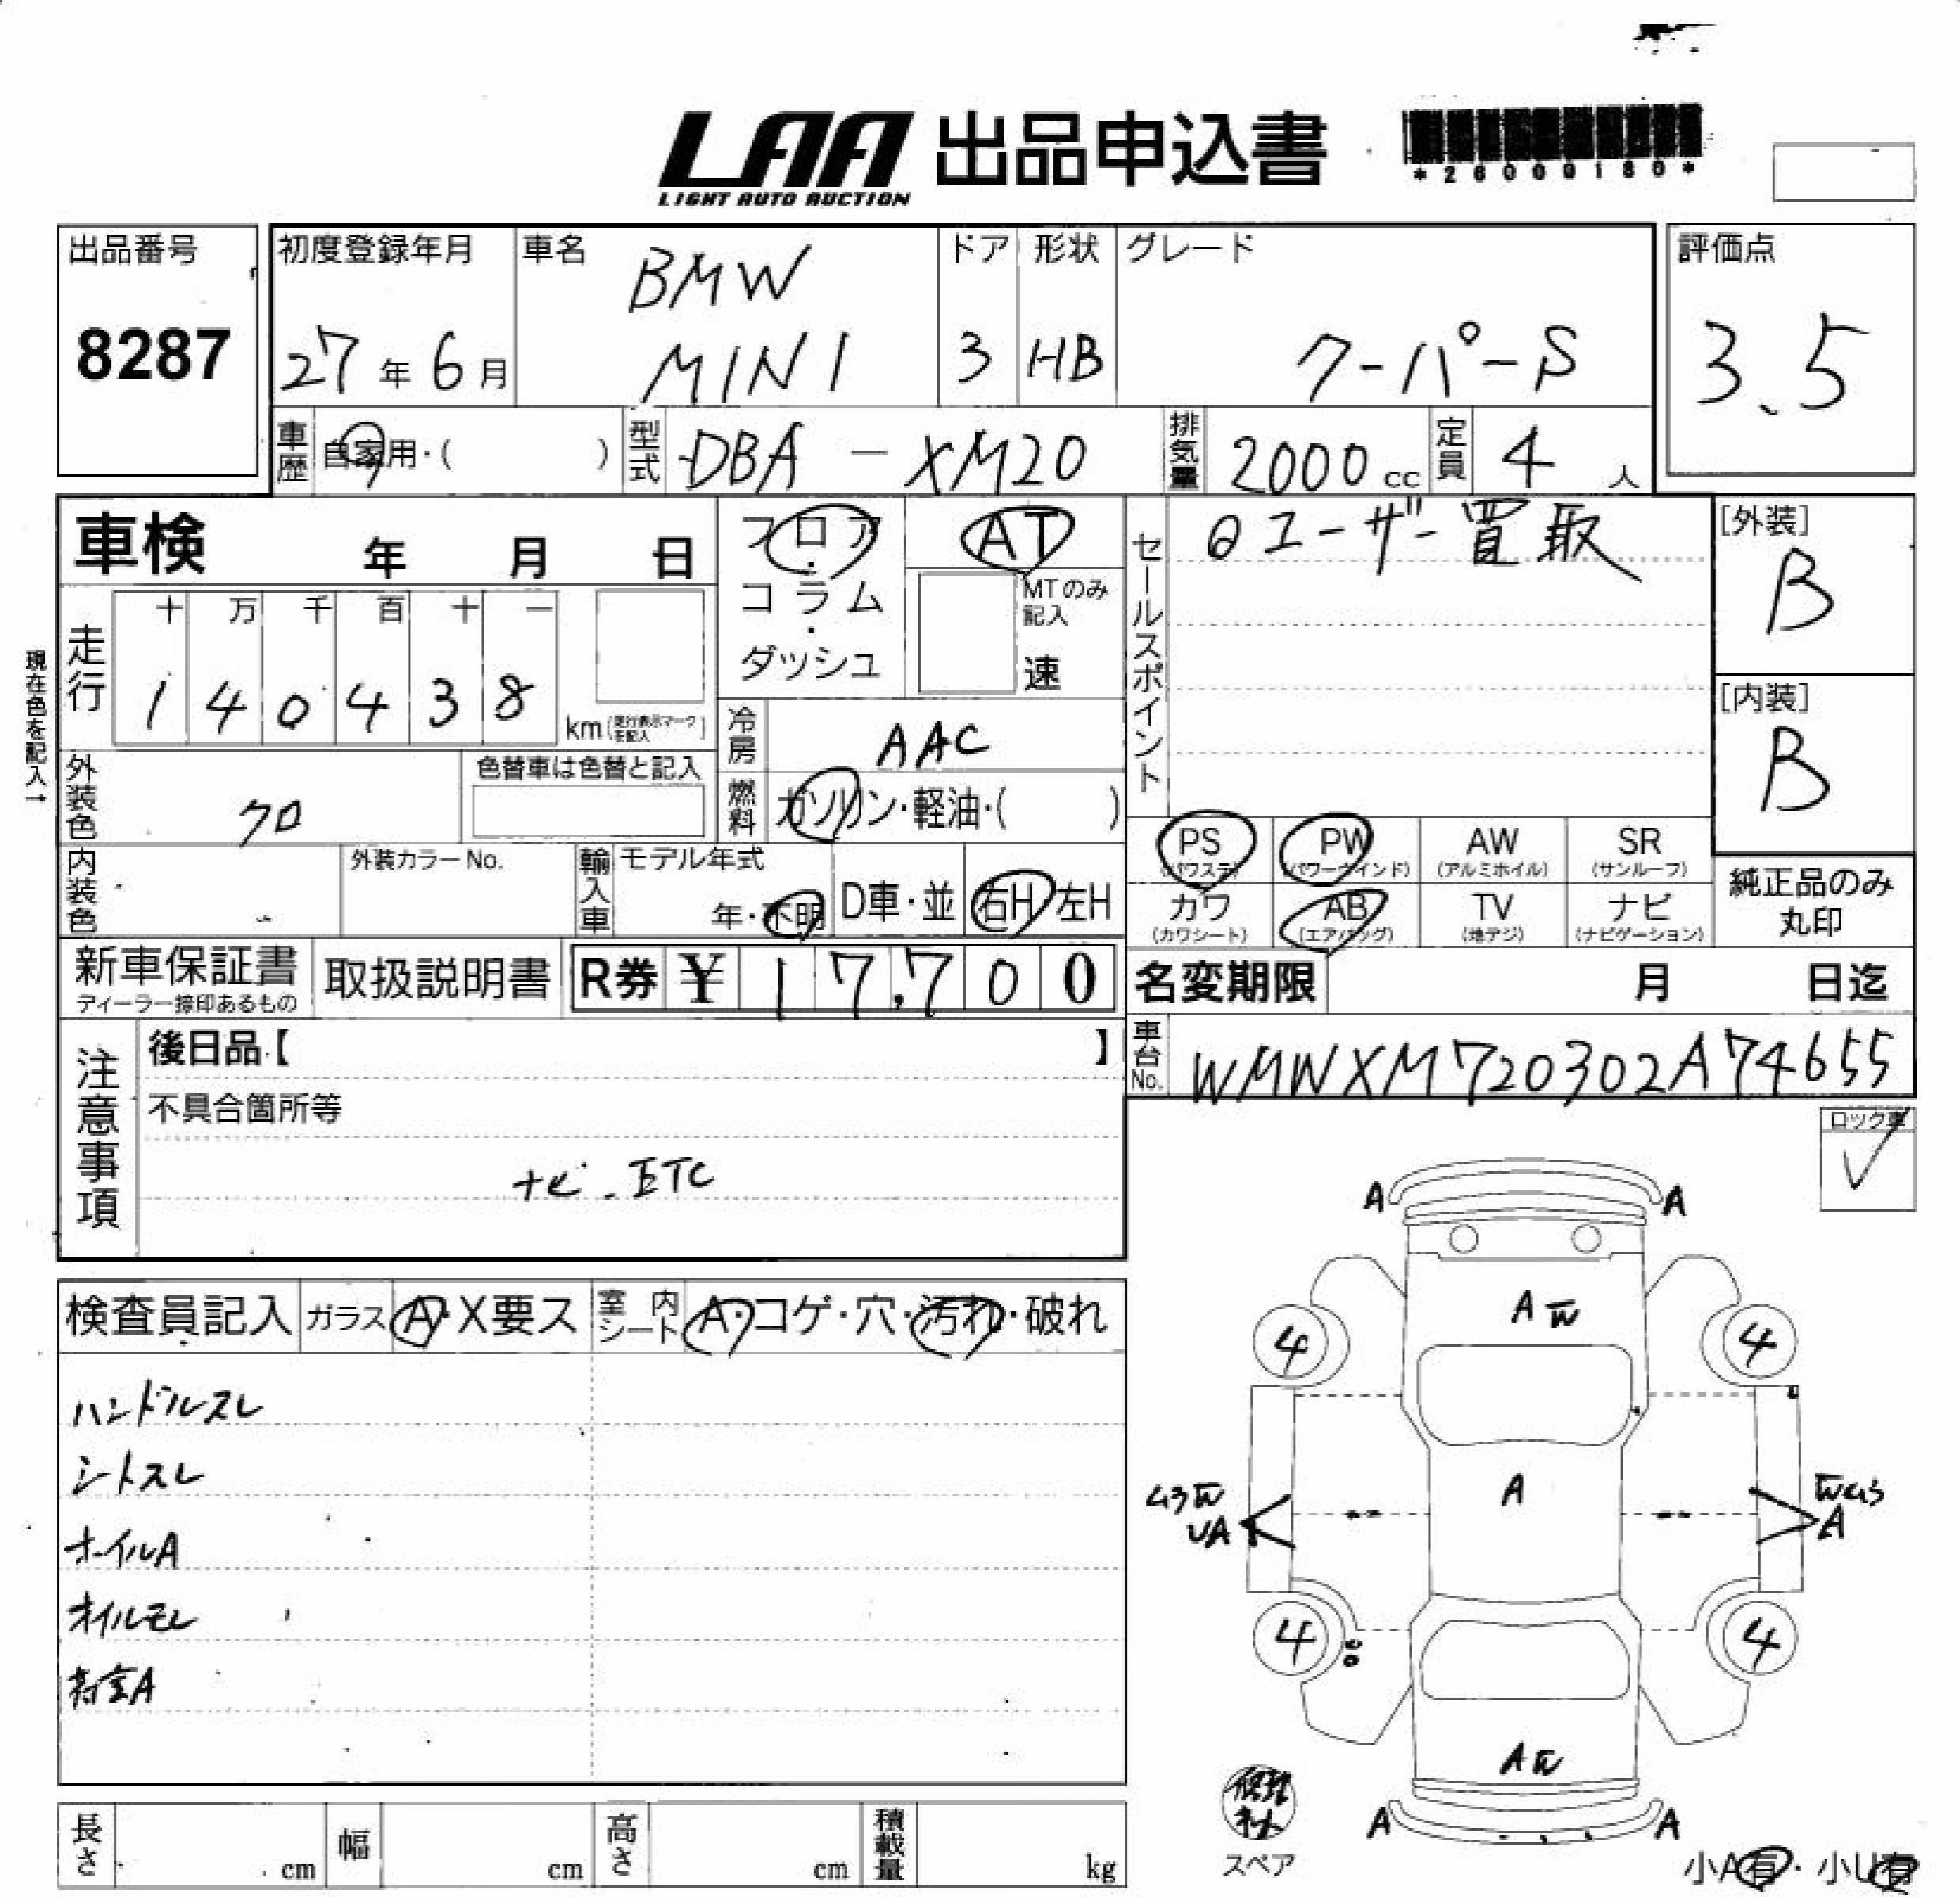 LAA 出品申込書
LIGHT AUTO AUCTION
*26000180*
出品番号
8287
初度登録年月
27年6月
車名
BMW
MINI
ドア
3
形状
HB
グレード
クーパーS
評価点
3.5
車歴
自家用・( )
型式
DBA - XM20
排気量
2000 cc
定員
4 人
車検 年 月 日
フロア
・
コラム
・
ダッシュ
AT
MTのみ
記入
速
セールスポイント
①ユーザー買取
[外装]
B
[内装]
B
現在色を記入→
走行
十 万 千 百 十 一
1 4 0 4 3 8
km(走行表示マークを記入)
冷房
AAC
燃料
ガソリン・軽油・( )
外装色
クロ
色替車は色替と記入
内装色
外装カラーNo.
輸入車
モデル年式
年・不明
D車・並
右H 左H
PS
(パワステ)
PW
(パワーウインド)
AW
(アルミホイル)
SR
(サンルーフ)
カワ
(カワシート)
AB
(エアバッグ)
TV
(地デジ)
ナビ
(ナビゲーション)
純正品のみ
丸印
新車保証書
ディーラー捺印あるもの
取扱説明書
R券 ¥ 17,700
名変期限 月 日迄
車台No.
WMWXM720302A74655
注意事項
後日品【 】
不具合箇所等
ナビ.ETC
ロック車
検査員記入
ガラス A・X要ス
室内シート A・コゲ・穴・汚れ・破れ
ハンドルスレ
シートスレ
オイルモレ
A A
A W
4 4
A
A
UA
4 4
A W
A A
スペア
小A有・小U有
長さ cm
幅 cm
高さ cm
積載量 kg